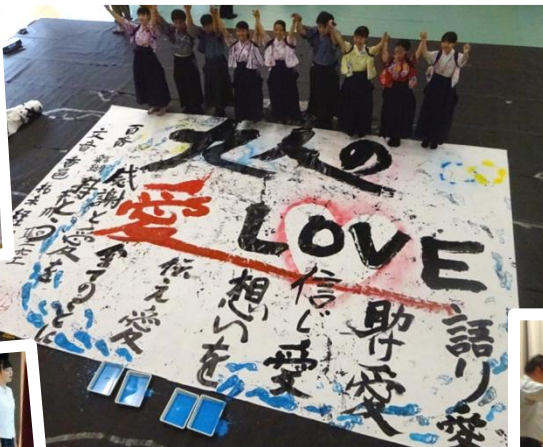 九人の
LOVE
愛
語り愛
助け愛
信じ愛
想いを
伝え愛
全てのことに
感謝と愛を